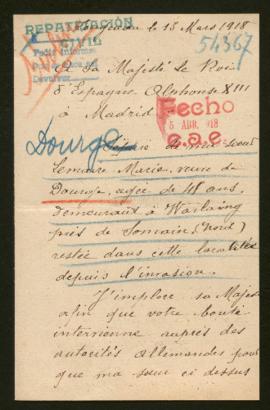 13 Mars 1918
REPATRIACIÓN
CIVIL
Pedir informes
Devolver
54367
A Sa Majesté le Roi
d'Espagne Alphonse XIII
à Madrid
Fecho
5 ABR. 918
Dourge
Lemaire Marie, veuve de
Dourge, agée de 48 ans,
demeurant à Warlaing
près de Somain (Nord)
restée dans cette localité
depuis l'invasion.
J'implore sa Majesté
afin que votre bonté
intervienne auprès des
autorités allemandes pour
que ma sœur ci dessus